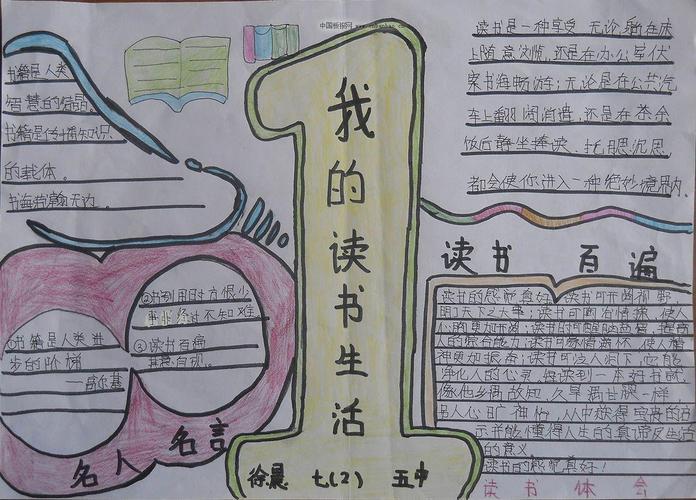 中国板报网
书籍是人类
智慧的结晶
书籍是传播知识
的载体
书海浩瀚无边
我的读书生活
徐晨 七(2) 五中
读书是一种享受 无论躺在床
上随意浏览,还是在办公室伏
案书海畅游;无论是在公共汽
车上翻阅消遣,还是在茶余
饭后静坐捧读、托腮沉思,
都会使你进入一种绝妙境界内
①书籍是人类进
步的阶梯
——高尔基
②书到用时方恨少
事非经过不知难。
③读书百遍
其意自现。
名人名言
读书 百遍
读书的感觉真好,读书可开阔视野
明了天下之事;读书可陶冶情操,使人
心胸更加开阔;读书可
人的综合能力;读书可
神更加振奋;读书可
净化人的心灵,每读到一本好书就
像他乡遇故知,久旱遇甘醴一样
书人心旷神怡,从中获得宝贵的
示并能懂得人生的真谛及生活
的意义
读书的感觉真好!
读书体会